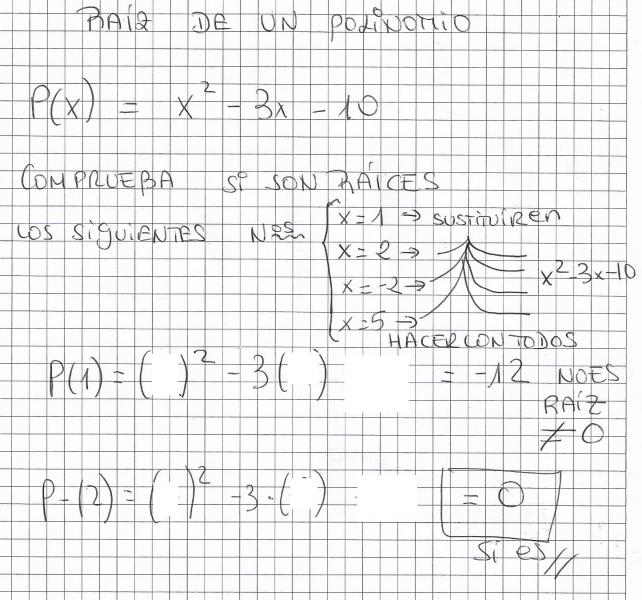 RAÍZ DE UN POLINOMIO
P(x) = x² - 3x - 10
COMPRUEBA SI SON RAÍCES
LOS SIGUIENTES Nºs
x = 1 → SUSTITUIR en
x = 2 →
x = -2 →
x = 5 →
x² - 3x - 10
HACER CON TODOS
P(1) = ( )² - 3( ) = -12 NO ES
RAÍZ
≠ 0
P-(2) = ( )² - 3·( ) = 0
SI es //